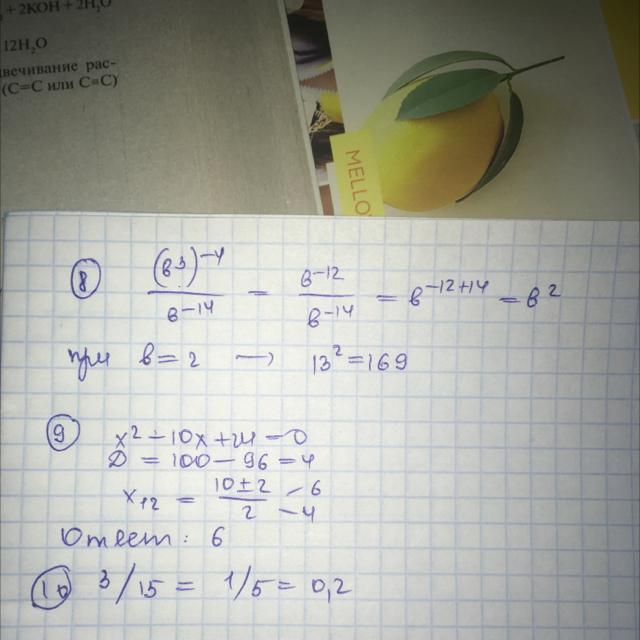 + 2KOH + 2H₂O
12H₂O
вечивание рас-
(C=C или C≡C)
MELLO
8 (в³)⁻⁴ / в⁻¹⁴ = в⁻¹² / в⁻¹⁴ = в⁻¹²⁺¹⁴ = в²
при в = 2 → 13² = 169
9 x² − 10x + 24 = 0
D = 100 − 96 = 4
x₁₂ = (10 ± 2) / 2 − 6 − 4
Ответ: 6
10 3/15 = 1/5 = 0,2